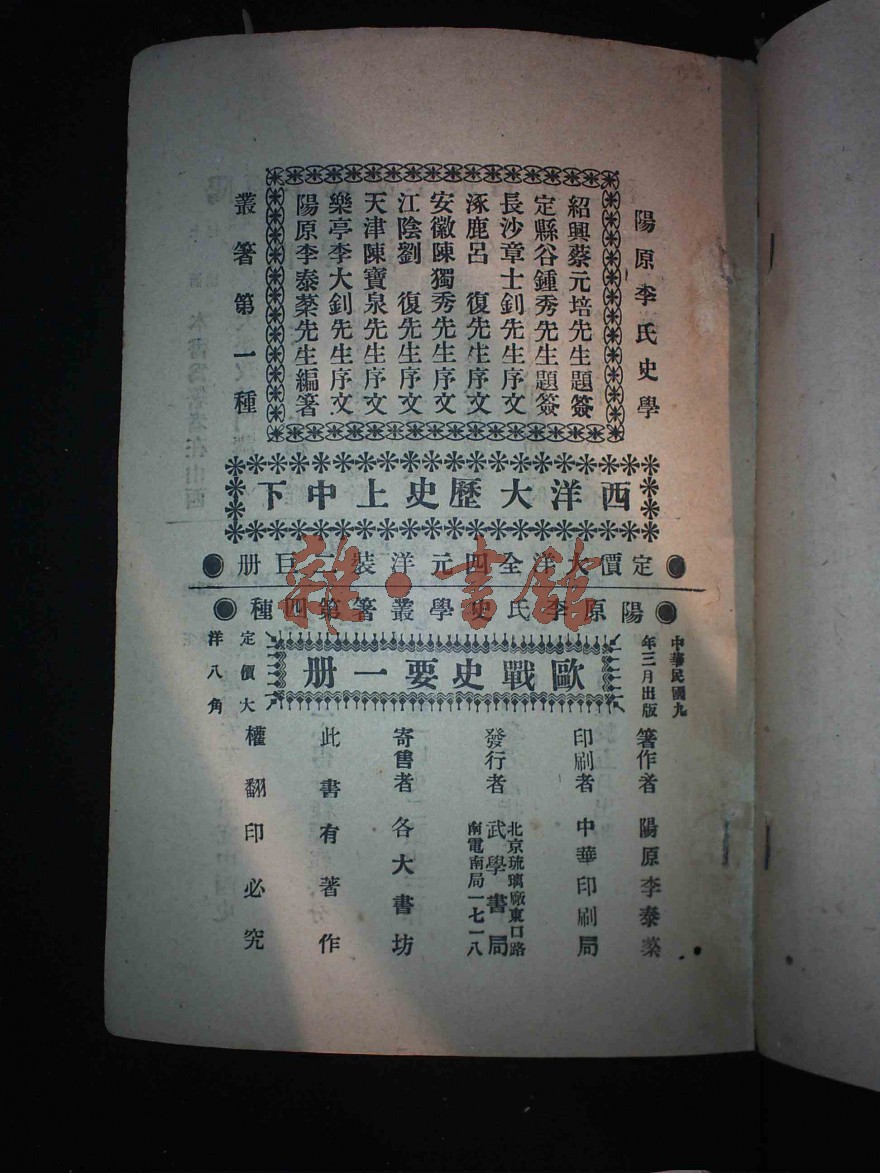 陽原李氏史學
紹興蔡元培先生題簽
定縣谷鍾秀先生題簽
長沙章士釗先生序文
涿鹿呂　復先生序文
安徽陳獨秀先生序文
江陰劉　復先生序文
天津陳寶泉先生序文
樂亭李大釗先生序文
陽原李泰棻先生編著
叢著第一種
西洋大歷史上中下
●定價大洋全四元洋裝二巨册●
●陽原李氏史學叢著第四種●
中華民國九
年三月出版
歐戰史要一册
定價大
洋八角
著作者　陽原李泰棻
印刷者　中華印刷局
發行者　武學書局
北京琉璃廠東口路
南電南局一七一八
寄售者　各大書坊
此書有著作
權翻印必究
雜·書館